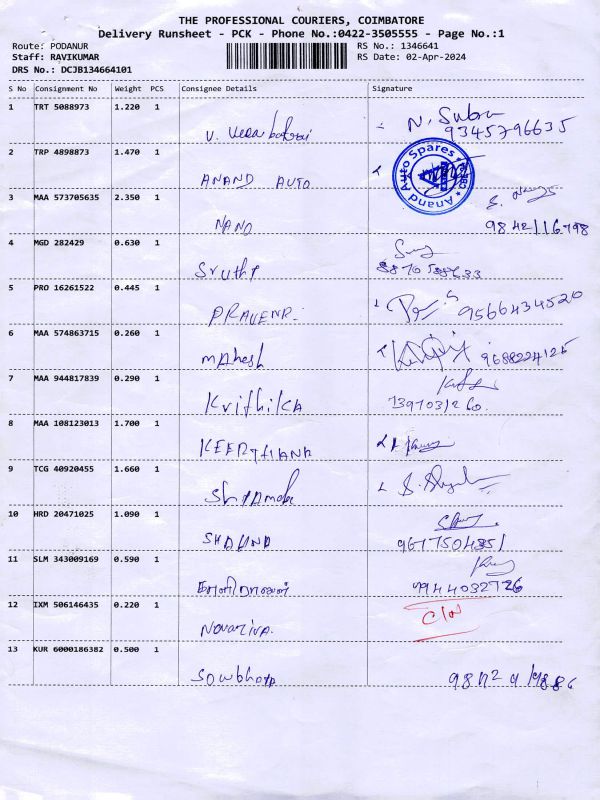 THE PROFESSIONAL COURIERS, COIMBATORE
Delivery Runsheet - PCK - Phone No.:0422-3505555 - Page No.:1
Route: PODANUR RS No.: 1346641
Staff: RAVIKUMAR RS Date: 02-Apr-2024
DRS No.: DCJB134664101
S No Consignment No Weight PCS Consignee Details Signature
1 TRT 5088973 1.220 1 N. Subra
V. 9345796635
2 TRP 4898873 1.470 1 Anand Auto Spares
ANAND AUTO
3 MAA 573705635 2.350 1
NAND
4 MGD 282429 0.630 1
Sruthi
5 PRO 16261522 0.445 1
PRAVENR. 9566434520
6 MAA 574863715 0.260 1
Mahesh 9688224125
7 MAA 944817839 0.290 1
Krithika
8 MAA 108123013 1.700 1
KEERTHANA
9 TCG 40920455 1.660 1
10 HRD 20471025 1.090 1
11 SLM 343009169 0.590 1
9944032726
12 IXM 506146435 0.220 1
13 KUR 6000186382 0.500 1